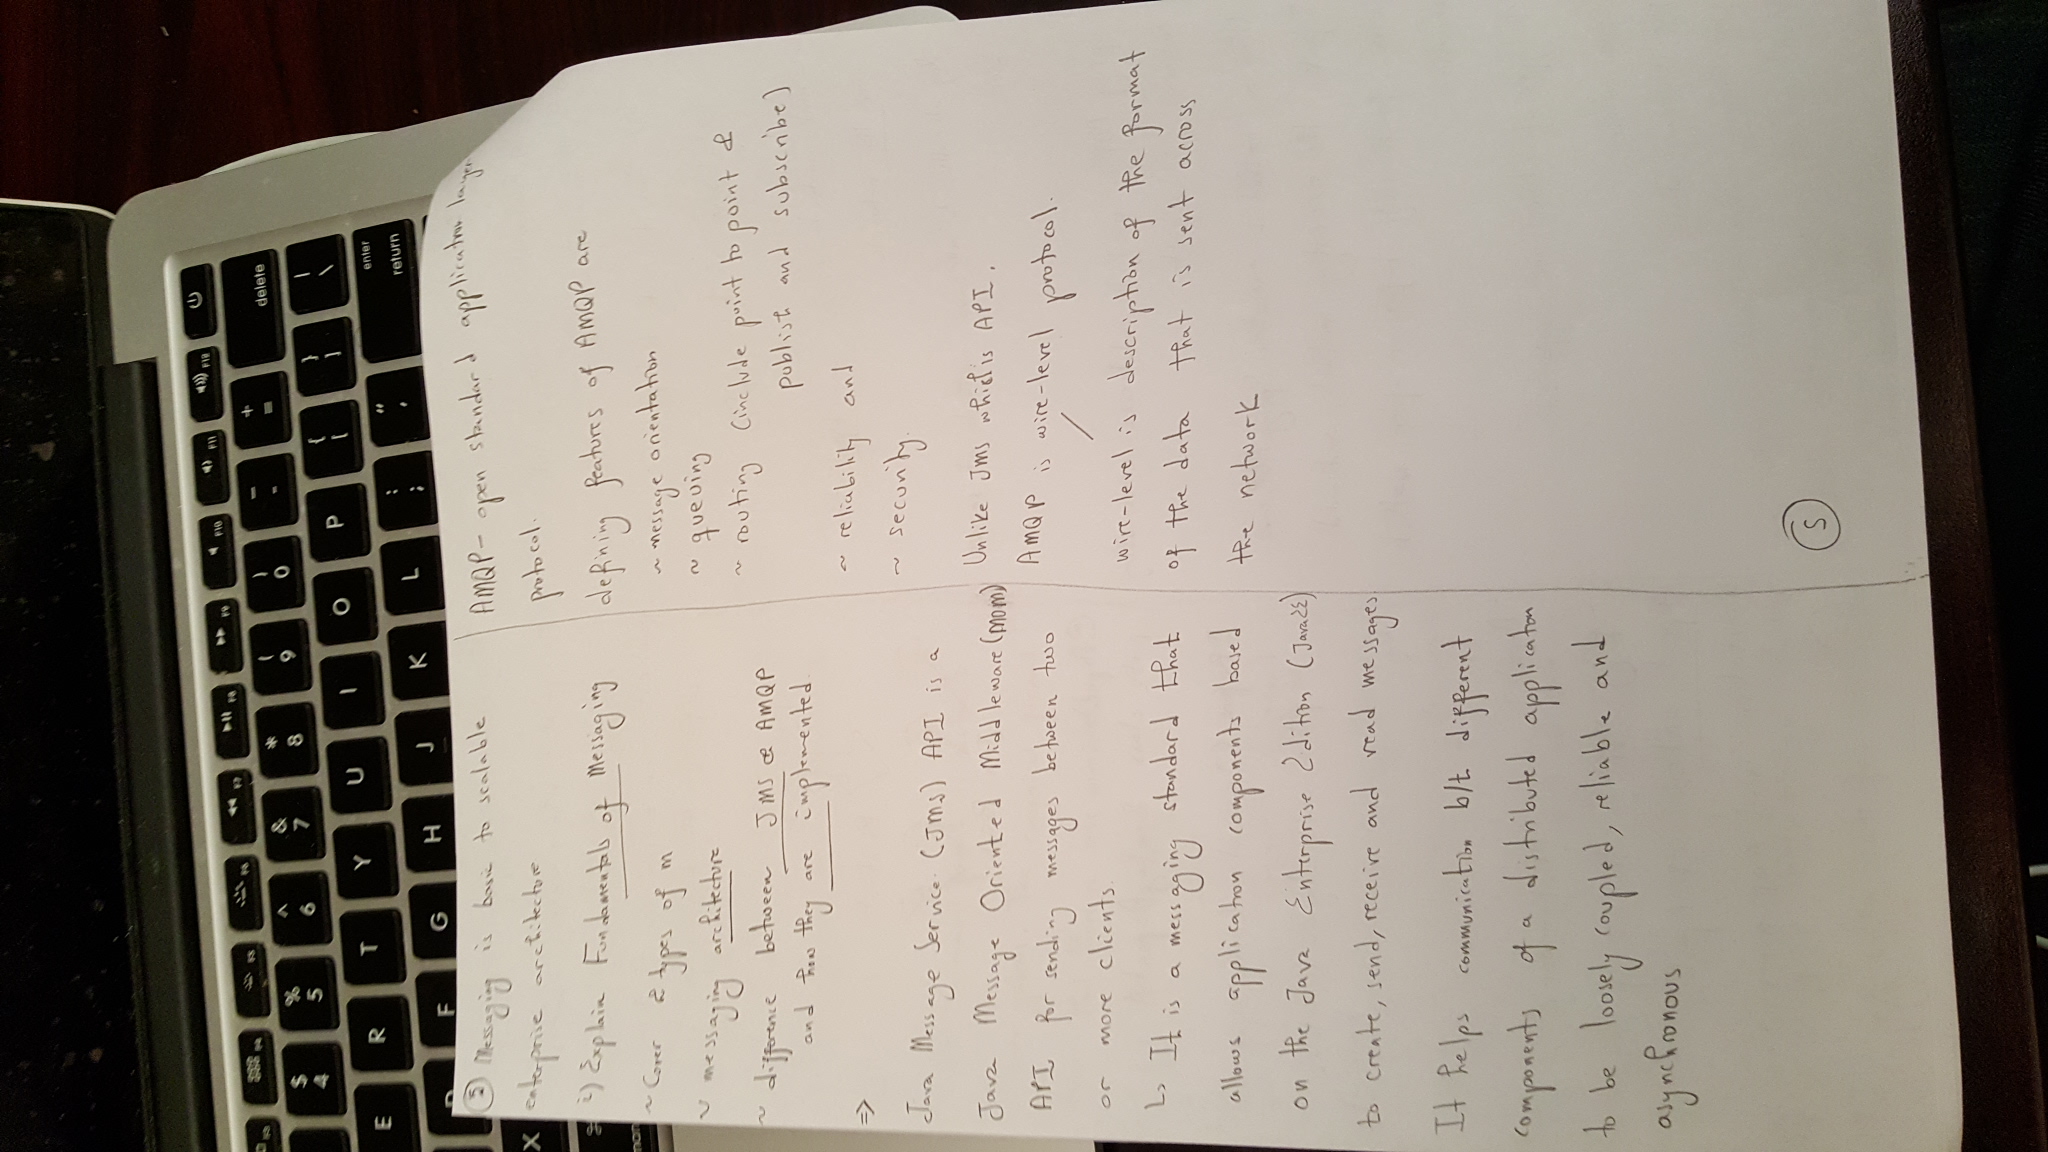 F4
F5
F6
F7
F8
F9
F10
F11
F12
delete
$ 4
% 5
^ 6
& 7
* 8
( 9
) 0
_ -
+ =
E R T Y U I O P { [ } ] | \
enter
return
F G H J K L : ; " '
X
⑤ Messaging is basic to scalable
enterprise architecture
i) Explain Fundamentals of Messaging
~ Cover 2 types of m
~ messaging architecture
~ difference between JMS & AMQP
and how they are implemented.
=>
Java Message Service (JMS) API is a
Java Message Oriented Middleware (MOM)
API for sending messages between two
or more clients.
↳ It is a messaging standard that
allows application components based
on the Java Enterprise Edition (JavaEE)
to create, send, receive and read messages
It helps communication b/t different
components of a distributed application
to be loosely coupled, reliable and
asynchronous
AMQP - open standard application layer
protocol.
defining features of AMQP are
~ message orientation
~ queuing
~ routing (include point to point &
publish and subscribe)
~ reliability and
~ security.
Unlike JMS which is API,
AMQP is wire-level protocol.
wire-level is description of the format
of the data that is sent across
the network
⑤